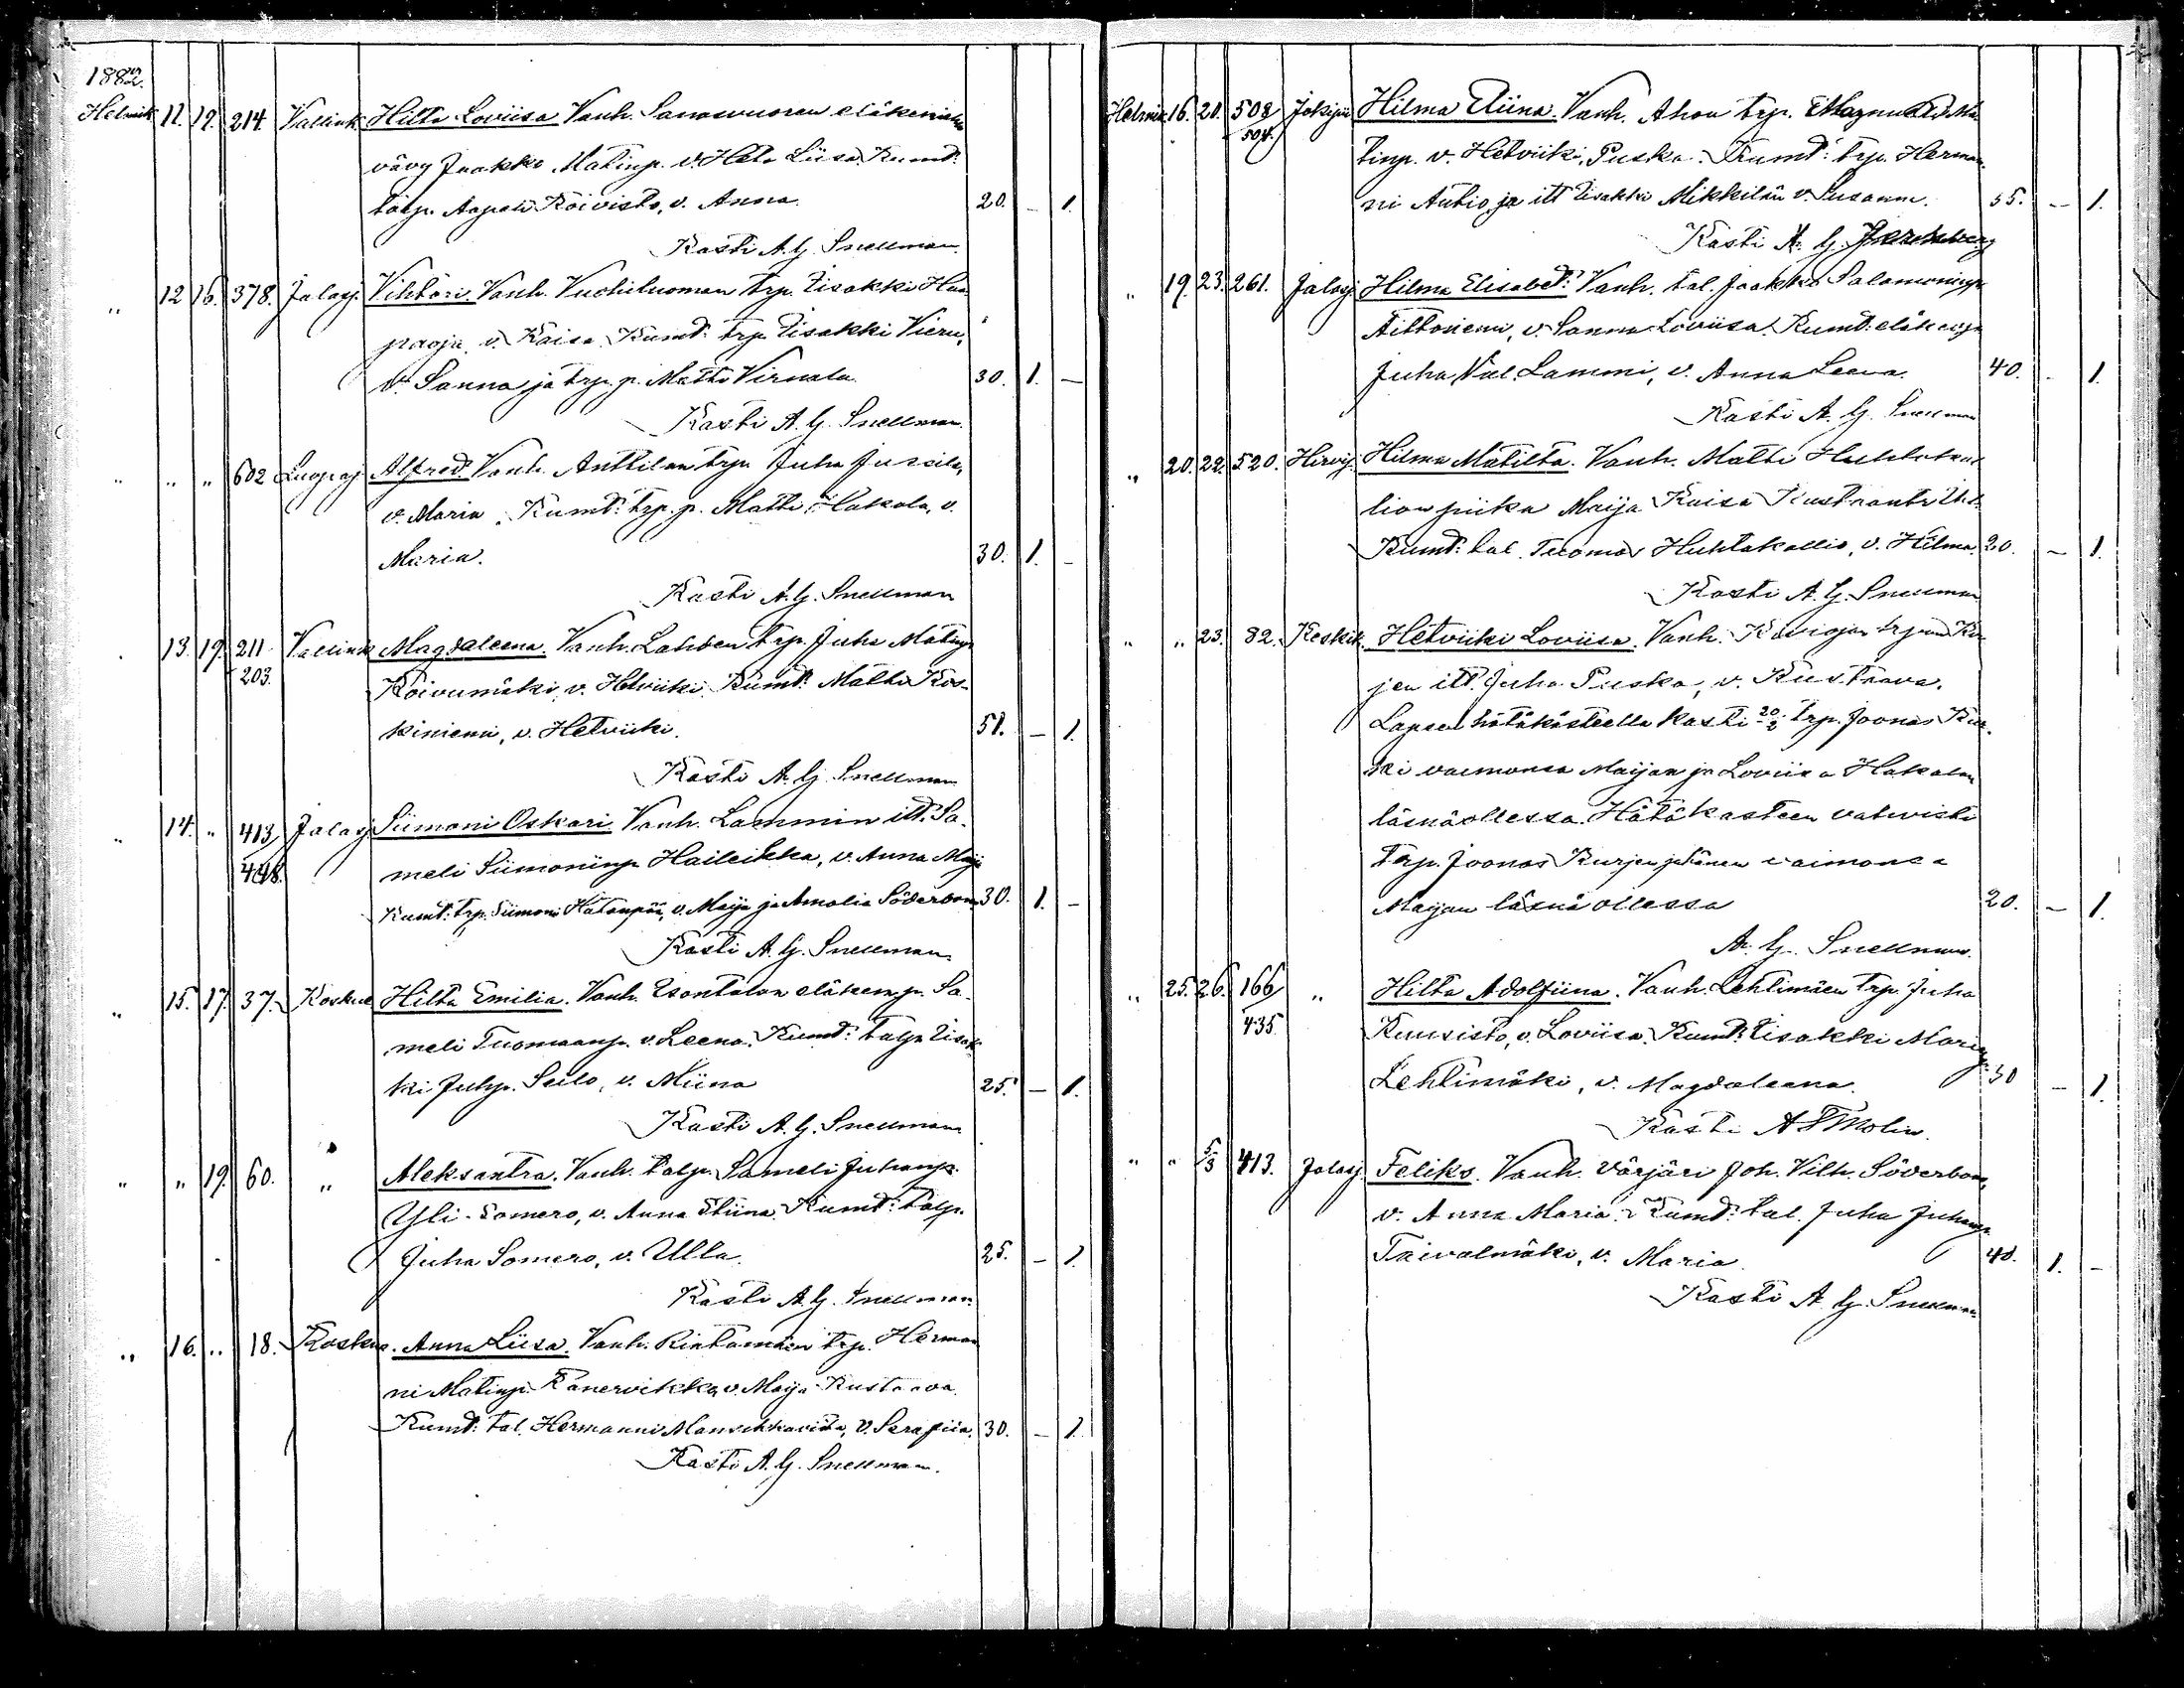 1882.
Helmik. 11. 19. 214. Vallink. Hilta Loviisa. Vanh. eläkemiehen
vävy Jaakko Matinp. v. Heta Liisa. Kumd:
talp. Aapeli Koivisto, v. Anna. 20. – 1.
Kasti A. G. Snellman.
" 12 16. 378. Jalasj. Vihtori. Vanh. Vuohiluoman trp. Iisakki
v. Kaisa. Kumd: trp. Iisakki Vieru,
v. Sanna ja trp. p. Matti Virnala. 30. 1. –
Kasti A. G. Snellman.
" " " 602 Luopaj. Alfred. Vanh. Anttilan trp. Juha Jussila,
v. Maria. Kumd: trp. p. Matti Hakola, v.
Maria. 30. 1. –
Kasti A. G. Snellman
" 13. 19. 211 Vallink. Magdaleena. Vanh. Lahden trp. Juha Matinp.
203. Koivumäki, v. Hetviiki. Kumd: Matti Kos-
kiniemi, v. Hetviiki. 51. – 1.
Kasti A. G. Snellman
" 14. " 413 Jalasj. Siimoni Oskari. Vanh. Lammin itt. Sa-
448. meli Siimoninp. Haileikka, v. Anna Maija
Kumd: trp. Siimoni Hatanpää, v. Maija ja Amalia Söderbom 30. 1. –
Kasti A. G. Snellman.
" 15. 17. 37. Koskue Hilta Emilia. Vanh. Isontalon eläkem. p. Sa-
meli Tuomaanp. v. Leena. Kumd: talp. Iisak-
ki Juhp. Seilo, v. Miina 25. – 1.
Kasti A. G. Snellman
" " 19. 60. " Aleksantra. Vanh. talp. Sameli Juhanp.
Yli-Somero, v. Anna Stiina. Kumd: talp.
Juha Somero, v. Ulla. 25. – 1.
Kasti A. G. Snellman.
" 16. " 18. Koskue. Anna Liisa. Vanh. Rintamäen trp. Herman-
ni Matinp. Kanervikko, v. Maija Kustaava.
Kumd: tal. Hermanni Mansikkaviita, v. Serafiia. 30. – 1.
Kasti A. G. Snellman.
Helmik. 16. 20. 508 Jokipii Hilma Eliina. Vanh. Ahon trp.
504. tinp. v. Hetviiki, Puska. Kumd: trp. Herman-
ni Autio, ja itt Iisakki Mikkilän v. Susanna. 35. – 1.
Kasti A. G.
" 19. 23. 261. Jalasj. Hilma Elisabet. Vanh. tal. Jaakko Salomoninp.
Aittoniemi, v. Sanna Loviisa. Kumd: eläkem.
Juha Lammi, v. Anna Leena. 40. – 1.
Kasti A. G. Snellman
" 20. 22. 520. Hirvij. Hilma Matilta. Vanh. Matti Huhtakal-
lion piika Maija Kaisa
Kumd: tal. Tuomas Huhtakallio, v. Hilma. 20. – 1.
Kasti A. G. Snellman
" " 23. 82. Keskik. Hetviiki Loviisa. Vanh.
jen itt. Juha Puska, v. Kustaava.
Lapsen hätäkasteella kasti 20/2 trp. Joonas Kur-
ki vaimonsa Maijan ja Loviisa Hakalan
läsnäollessa. Hätäkasteen vahvisti
trp. Joonas Kurjen ja hänen vaimonsa
Maijan läsnä ollessa 20. – 1.
A. G. Snellman.
" 25. 26. 166 " Hilta Adolfiina. Vanh. Lehtimäen trp. Juha
435. Kuusisto, v. Loviisa. Kumd: Iisakki Marinp.
Lehtimäki, v. Magdaleena. 30 – 1.
Kasti A F Molin.
" " 5/3 413. Jalasj. Feliks. Vanh. Värjäri Joh. Vilh. Söderbom,
v. Anna Maria. Kumd: tal. Juha Juhanp.
Taivalmäki, v. Maria. 40. 1. –
Kasti A. G. Snellman.